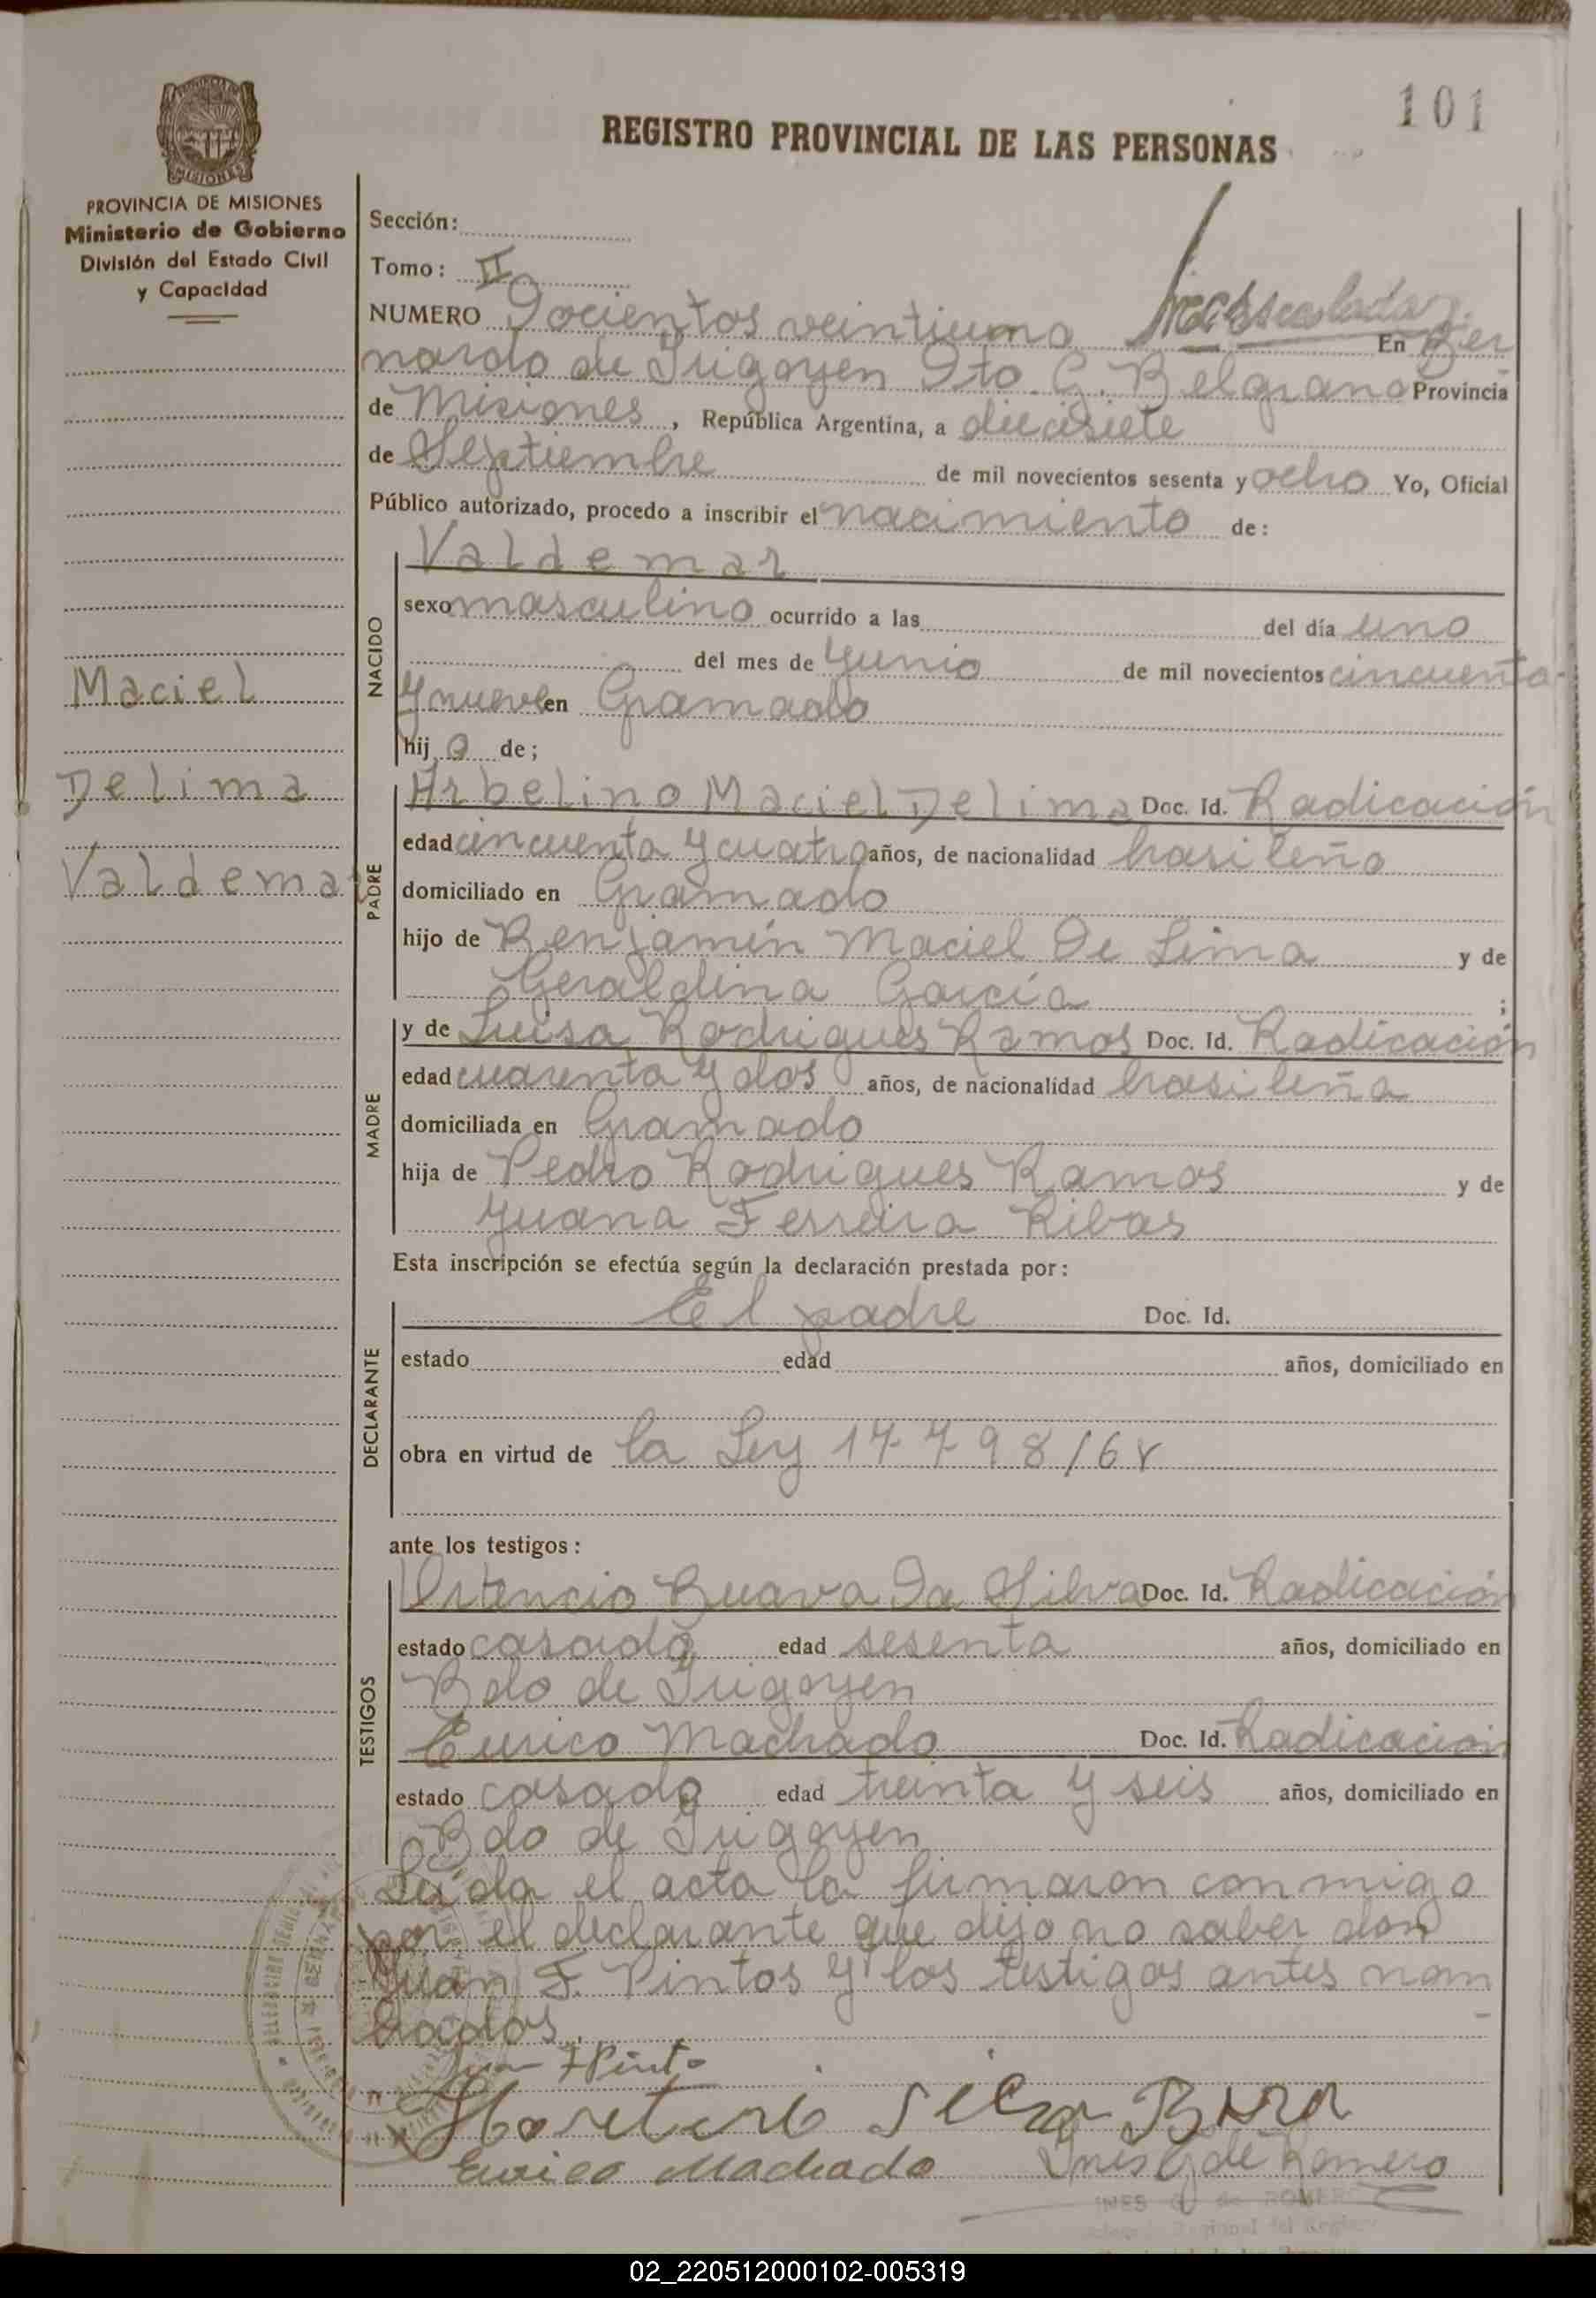 101
REGISTRO PROVINCIAL DE LAS PERSONAS
PROVINCIA DE MISIONES
Ministerio de Gobierno
División del Estado Civil
y Capacidad
Sección:
Tomo: II
NUMERO Docientos veintiuno En Ber
nardo de Irigoyen Dto. G. Belgrano Provincia
de Misiones, República Argentina, a diecisiete
de Septiembre de mil novecientos sesenta y ocho Yo, Oficial
Público autorizado, procedo a inscribir el nacimiento de:
Valdemar
NACIDO
sexo masculino ocurrido a las del día uno
del mes de Yunio de mil novecientos cincuenta
y nueve en Gramado
hij o de;
Maciel
Delima
Valdemar
PADRE
Arbelino Maciel Delima Doc. Id. Radicación
edad cincuenta y cuatro años, de nacionalidad brasileño
domiciliado en Gramado
hijo de Benjamín Maciel De Lima y de
Geraldina García ;
MADRE
y de Luisa Rodrigues Ramos Doc. Id. Radicación
edad cuarenta y dos años, de nacionalidad brasileña
domiciliada en Gramado
hija de Pedro Rodrigues Ramos y de
Yuana Ferreira Ribas
Esta inscripción se efectúa según la declaración prestada por:
DECLARANTE
El padre Doc. Id.
estado edad años, domiciliado en
obra en virtud de la Ley 17798/68
ante los testigos:
TESTIGOS
Ortencio Buava Da Silva Doc. Id. Radicación
estado casado edad sesenta años, domiciliado en
Bdo de Irigoyen
Eurico Machado Doc. Id. Radicación
estado casado edad treinta y seis años, domiciliado en
Bdo de Irigoyen
Leída el acta la firmaron conmigo
por el declarante que dijo no saber don
Juan F. Pintos y los testigos antes nom
brados.
Juan F Pinto
Silva
Eurico Machado Ines G de Romero
INES G de ROMERO
02_220512000102-005319